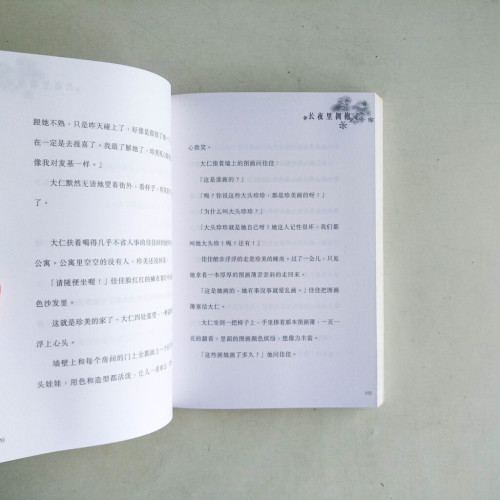 跟她不熟，只是昨天碰上了，好像是
在一定是去报喜了。我最了解她了，珍美
像我对发基一样。」
大仁默然无语地望着街外，看样子，
了。
大仁扶着喝得几乎不省人事的佳佳
公寓。公寓里空空的没有人，珍美还没回来
「请随便坐喔！」佳佳脸红红的瘫在
色沙发里。
这就是珍美的家了，大仁四处张望，一种
浮上心头。
墙壁上和每个房间的门上全都画上一个
头娃娃，用色和造型都活泼，让人一看
长夜里拥抱
心微笑。
大仁指着墙上的图画问佳佳：
「这是谁画的？」
「呃？你说这些大头珍珍，都是珍美画的呀！」
「为什么叫大头珍珍？」
「大头珍珍就是她自己呀！她这人记性很坏，我们都
叫她大头珍！呃！还有！」
佳佳醉步浮浮的走进珍美的睡房，过了一会儿，只见
她拿着一本厚厚的图画簿歪歪斜斜的走回来。
「这是她画的，她有事没事就爱乱画。」佳佳把图画
簿塞给大仁。
大仁坐到一把椅子上，手里捧着那本图画簿，一页一
页的翻着，里面的图画颜色缤纷，想像力丰富。
「这些画她画了多久？」他问佳佳。